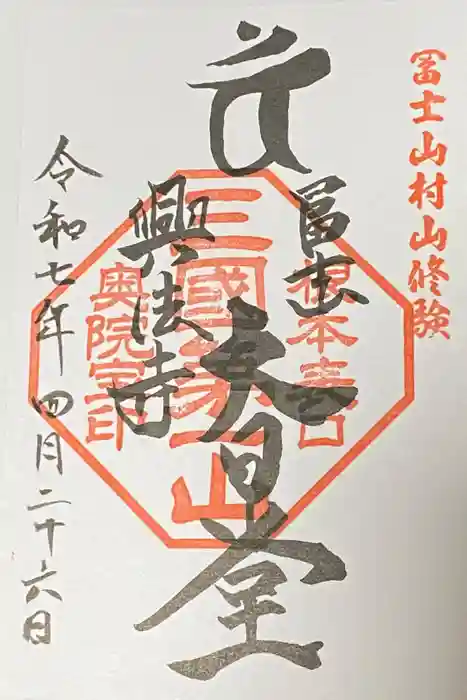 冨士山村山修験
冨士
大日堂
興法寺
根本表口
三國第一山
令和七年四月二十六日